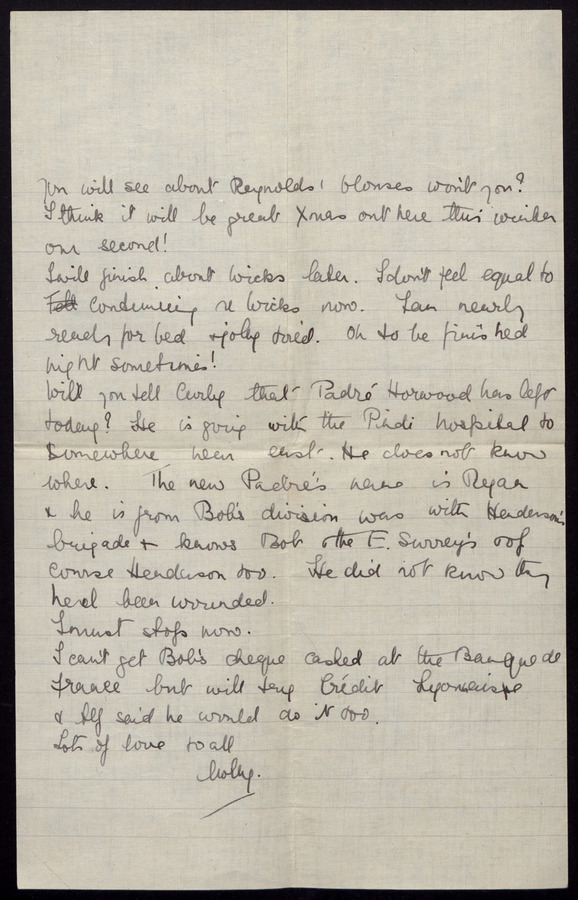 You will see about Reynolds' blouses won't you?
I think it will be great Xmas out here this winter
our second!
I will finish about wicks later. I don't feel equal to
Felt Continuing re wicks now. I am nearly
ready for bed & jolly tired. Oh to be finished
night sometimes!
Will you tell Curly that Padré Horwood has left
today? He is going with the Pindi hospital to
Somewhere near east. He does not know
where. The new Padré's name is Ryan
& he is from Bob's division was with Henderson's
brigade & knows Bob & the E. Surrey's & of
course Henderson too. He did not know they
had been wounded.
I must stop now.
I can't get Bob's cheque cashed at the Banque de
France but will try Crédit Lyonnaise
& Alf said he would do it too.
Lots of love to all
Molly.